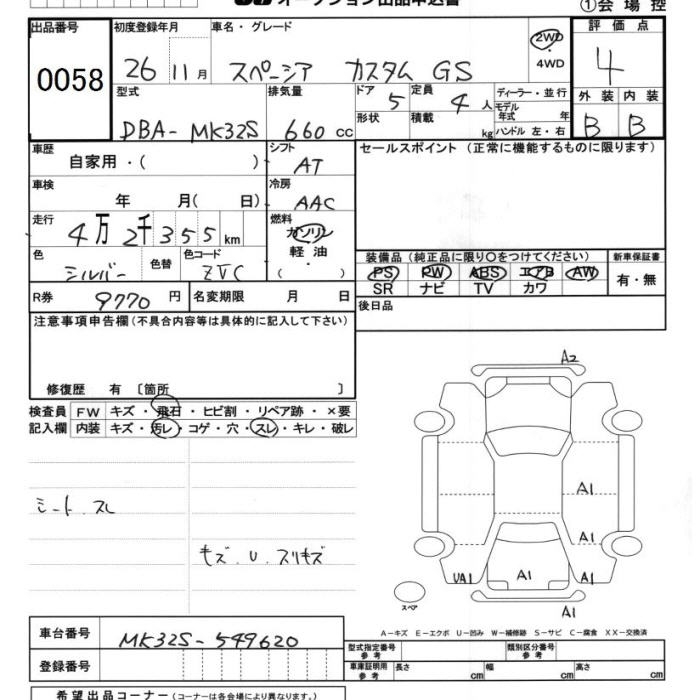 ①会場控
出品番号 初度登録年月 車名・グレード 評価点
0058 26 11月 スペーシア カスタム GS 2WD ・4WD 4
型式 排気量 ドア 5 定員 4人 ディーラー・並行 外装 内装
DBA-MK32S 660cc 形状 積載 kg モデル年式 年 ハンドル 左・右 B B
車歴 自家用・( ) シフト AT セールスポイント (正常に機能するものに限ります)
車検 年 月( 日) 冷房 AAC
走行 4万2千355km 燃料 ガソリン 軽油 ( )
色 シルバー 色替 色コード ZVC
装備品 (純正品に限り○をつけてください) 新車保証書
PS PW ABS エアB AW 有・無
SR ナビ TV カワ
R券 9770円 名変期限 月 日 後日品
注意事項申告欄 (不具合内容等は具体的に記入して下さい)
修復歴 有 〔箇所 〕
検査員 FW キズ・飛石・ヒビ割・リペア跡・×要
記入欄 内装 キズ・汚レ・コゲ・穴・スレ・キレ・破レ
A2
シート.スレ
A1
キズ.U.スリキズ
A1
UA1 A1 A1
スペア A1
A-キズ E-エクボ U-凹み W-補修跡 S-サビ C-腐食 XX-交換済
車台番号 MK32S-549620
型式指定番号 参考 類別区分番号 参考
登録番号 車庫証明用 参考 長さ cm 幅 cm 高さ cm
希望出品コーナー (コーナーは各会場により異なります。)